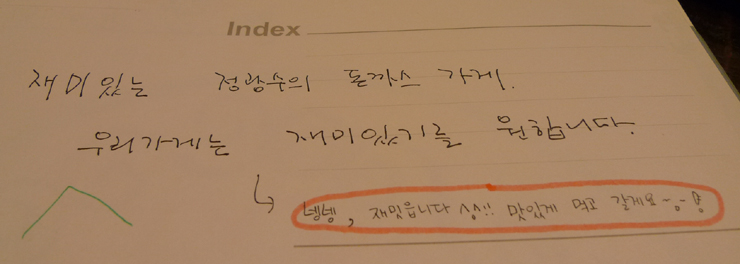 Index
재미있는 정광수의 돈까스 가게.
우리가게는 재미있기를 원합니다.
넹넹, 재밌읍니다 ^^!! 맛있게 먹고 갈게요~